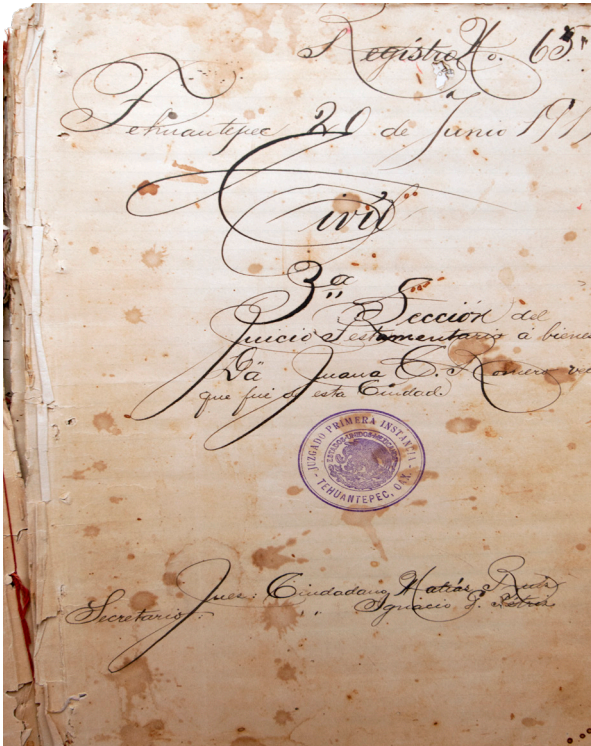 Registro No. 65.
Tehuantepec 20 de Junio 191
Civil
3ª Sección del
Juicio Testamentario á biene
Dª Juana C. Romero ve
que fué de esta Ciudad.
JUZGADO PRIMERA INSTANCIA
ESTADOS UNIDOS MEXICANOS
TEHUANTEPEC, OAX.
Juez: Ciudadano Matías
Secretario: " Ignacio